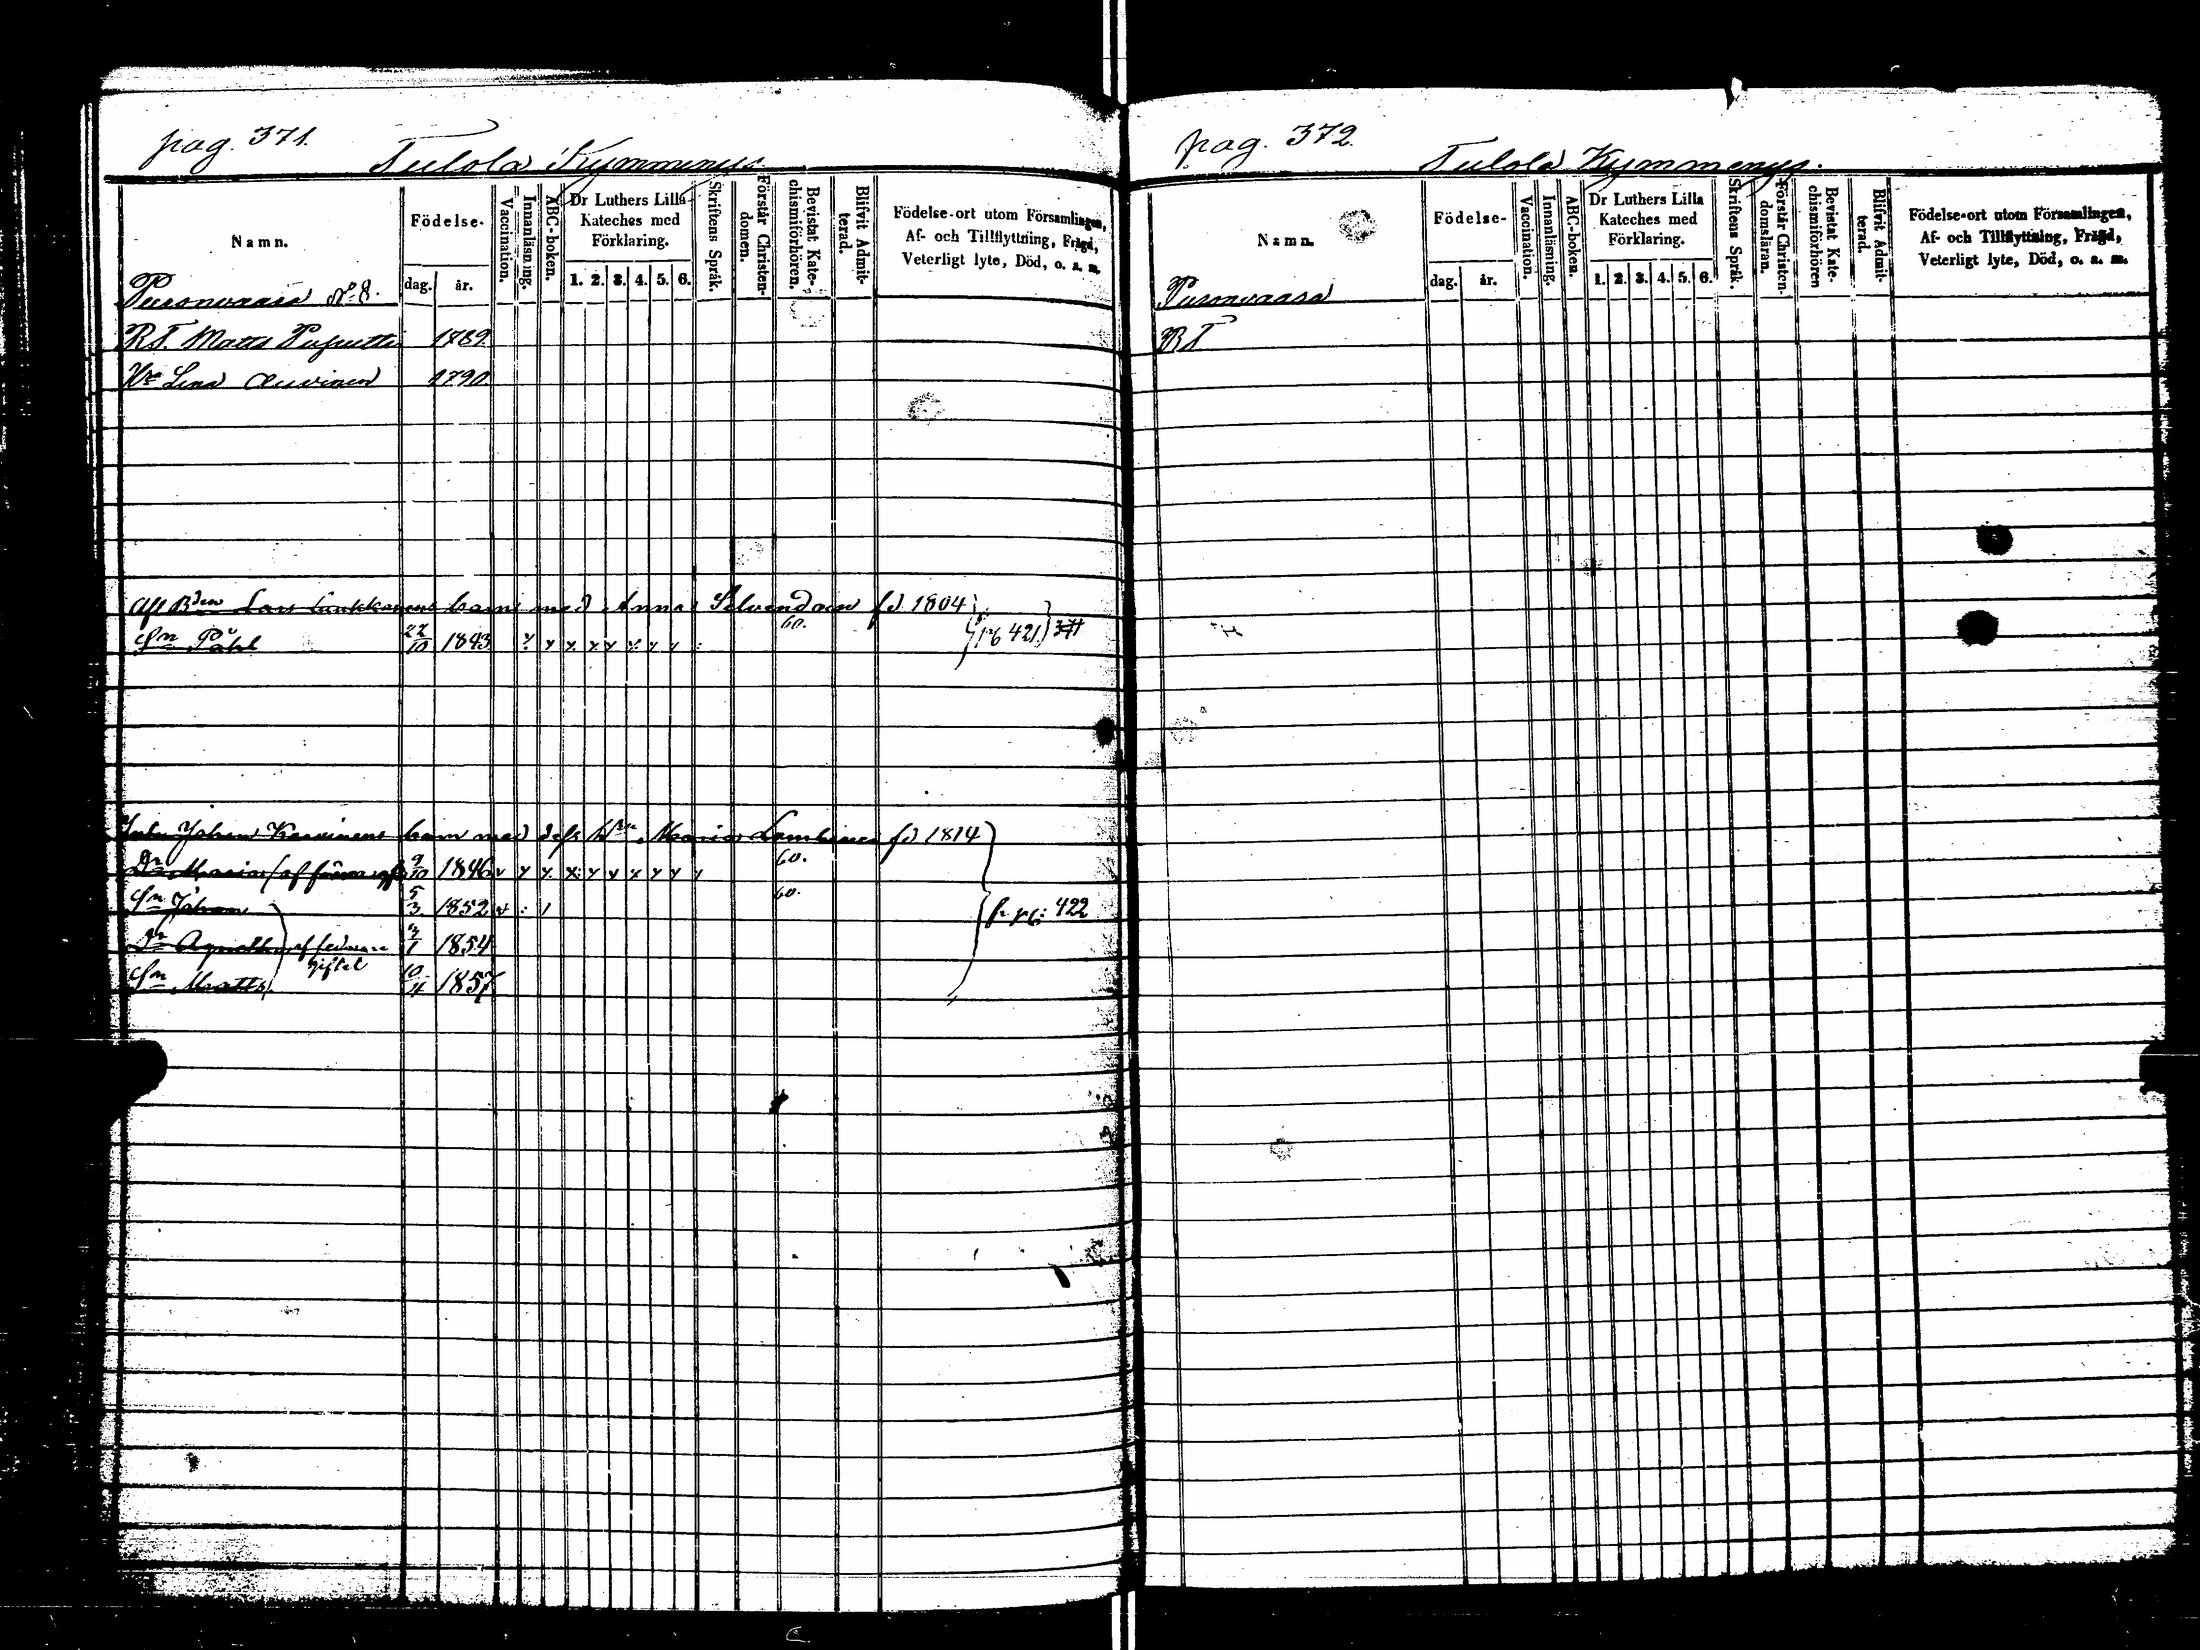 pag. 371.
Tulola Kymmenys
Namn.
Födelse-
dag. år.
Vaccination.
Innanläsning.
ABC-boken.
Dr Luthers Lilla Kateches med Förklaring.
1. 2. 3. 4. 5. 6.
Skriftens Språk.
Förstår Christen-domen.
Bevistat Kate-chismiförhören.
Blifvit Admit-terad.
Födelse-ort utom Församlingen,
Af- och Tillflyttning, Frägd,
Veterligt lyte, Död, o. a. m.
Puronvaara No 8.
RT. Matts 1789
Lena Auvinen 1790
Lars barn med Anna f.d 1804
Sn Påhl 22/10 1843 60. 421 371
Johan barn med dess Maria f.d 1814
Dr Maria 9/10 1846 60.
Sn Johan 5/3 1852 60.
Dr Agnetha af 1/1 1854 422
giftet
Sn Matts 10/4 1857
pag. 372.
Tulola Kymmenys.
Namn.
Födelse-
dag. år.
Vaccination.
Innanläsning.
ABC-boken.
Dr Luthers Lilla Kateches med Förklaring.
1. 2. 3. 4. 5. 6.
Skriftens Språk.
Förstår Christen-domsläran.
Bevistat Kate-chismiförhören
Blifvit Admit-terad.
Födelse-ort utom Församlingen,
Af- och Tillflyttning, Frägd,
Veterligt lyte, Död, o. a. m.
Puronvaara
RT